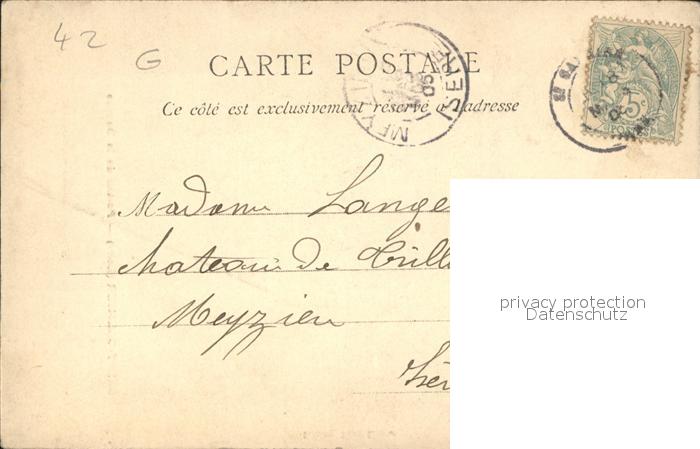 42
G
CARTE POSTALE
Ce côté est exclusivement réservé à l'adresse
5c
POSTES
Madame Lange
Chateau de
Meyzieu
privacy protection
Datenschutz